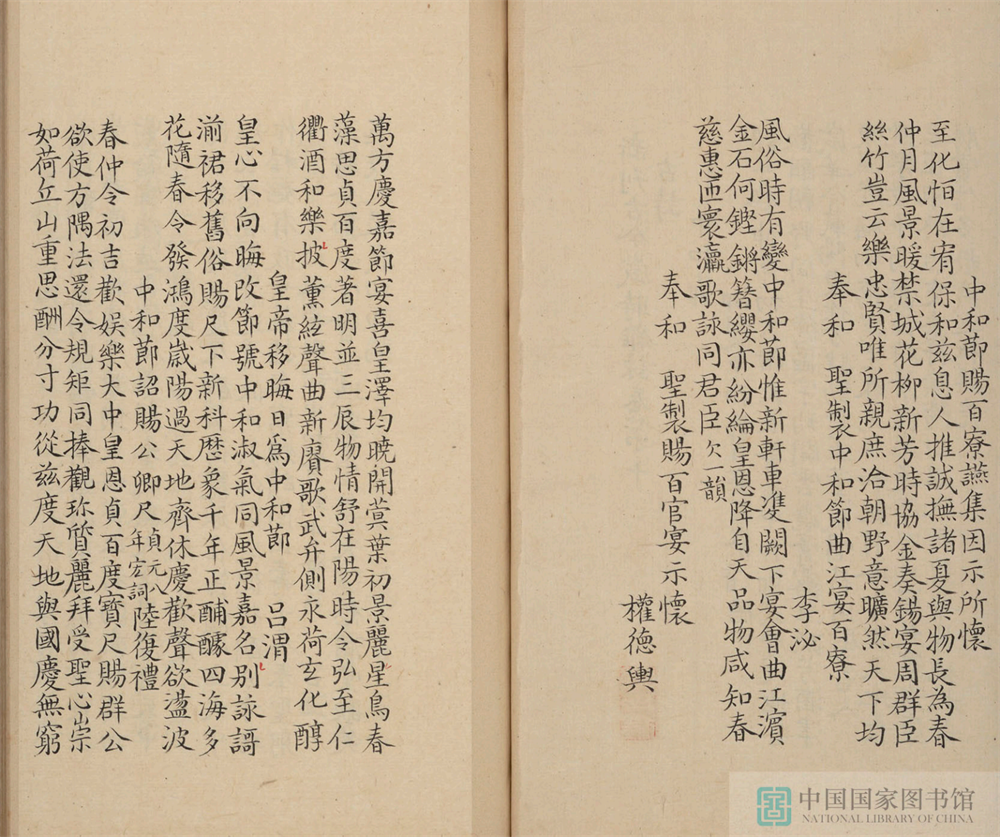 中和節賜百寮讌集因示所懷
至化恒在宥保和兹息人推誠撫諸夏與物長為春
仲月風景暖禁城花柳新芳時協金奏錫宴周群臣
絲竹豈云樂忠賢唯所親庶洽朝野意曠然天下均
奉和　聖製中和節曲江宴百寮
李泌
風俗時有變中和節惟新軒車雙闕下宴會曲江濱
金石何鏗鏘簪纓亦紛綸皇恩降自天品物咸知春
慈惠匝寰瀛歌詠同君臣欠一韻
奉和　聖製賜百官宴示懷
權德輿
萬方慶嘉節宴喜皇澤均曉開蓂葉初景麗星鳥春
藻思貞百度著明並三辰物情舒在陽時令弘至仁
衢酒和樂披薰絃聲曲新賡歌武弁側永荷玄化醇
皇帝移晦日爲中和節　呂渭
皇心不向晦改節號中和淑氣同風景嘉名别詠謌
湔裙移舊俗賜尺下新科歷象千年正酺醵四海多
花隨春令發鴻度歲陽過天地齊休慶歡聲欲盪波
中和節詔賜公卿尺貞元八年宏詞陸復禮
春仲令初吉歡娱樂大中皇恩貞百度寶尺賜群公
欲使方隅法還令規矩同捧觀珎質麗拜受聖心崇
如荷丘山重思酬分寸功從兹度天地與國慶無窮
中国国家图书馆
NATIONAL LIBRARY OF CHINA